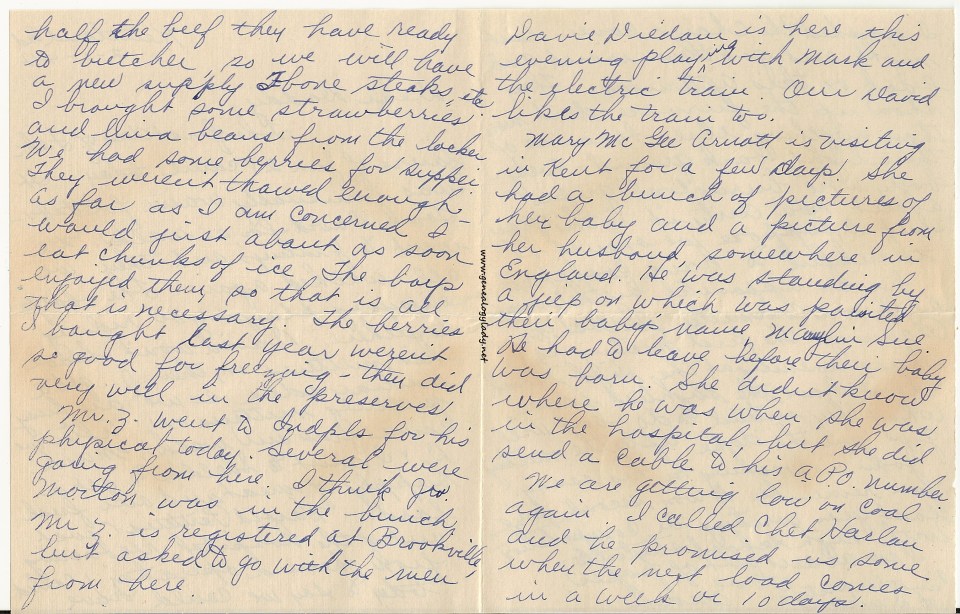 half the beef they have ready
to butcher, so we will have
a new supply T bone steaks, etc
I brought some strawberries
and lima beans from the locker
We had some berries for supper
They weren't thawed enough -
as far as I am concerned I
would just about as soon
eat chunks of ice. The boys
enjoyed them, so that is all
that is necessary. The berries
I bought last year weren't
so good for freezing - they did
very well in the preserves.
Mr. Z. went to Indpls for his
physical today. Several were
going from here. I think Jno.
Morton was in the bunch.
Mr Z. is registered at Brookville,
but asked to go with the men
from here.
www.genealogylady.net
Davie Diedam is here this
evening playing with Mark and
the electric train. Our David
likes the train too.
Mary Mc Gee Arnott is visiting
in Kent for a few days. She
had a bunch of pictures of
her baby and a picture from
her husband, somewhere in
England. He was standing by
a jeep on which was painted
their baby's name, Marylin Sue
He had to leave before their baby
was born. She didn't know
where he was when she was
in the hospital, but she did
send a cable to his A.P.O. number.
We are getting low on coal
again. I called Chet Harlan
and he promised us some
when the next load comes
in a week or 10 days.